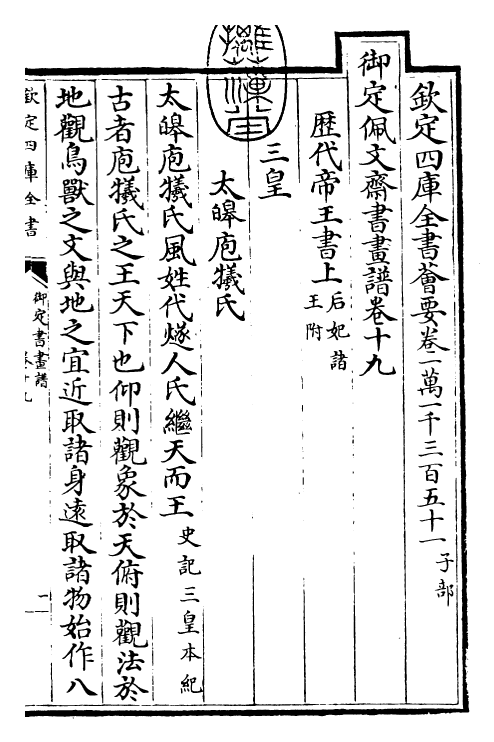 欽定四庫全書薈要卷二萬一千三百五十一子部
御定佩文齋書畫譜卷十九
歴代帝王書上后妃諸王附
三皇
太皞庖犧氏
太皞庖犧氏風姓代燧人氏繼天而王史記三皇本紀
古者庖犧氏之王天下也仰則觀象於天俯則觀法於
地觀鳥獸之文與地之宜近取諸身遠取諸物始作八
欽定四庫全書
御定書畫譜
卷十九
一